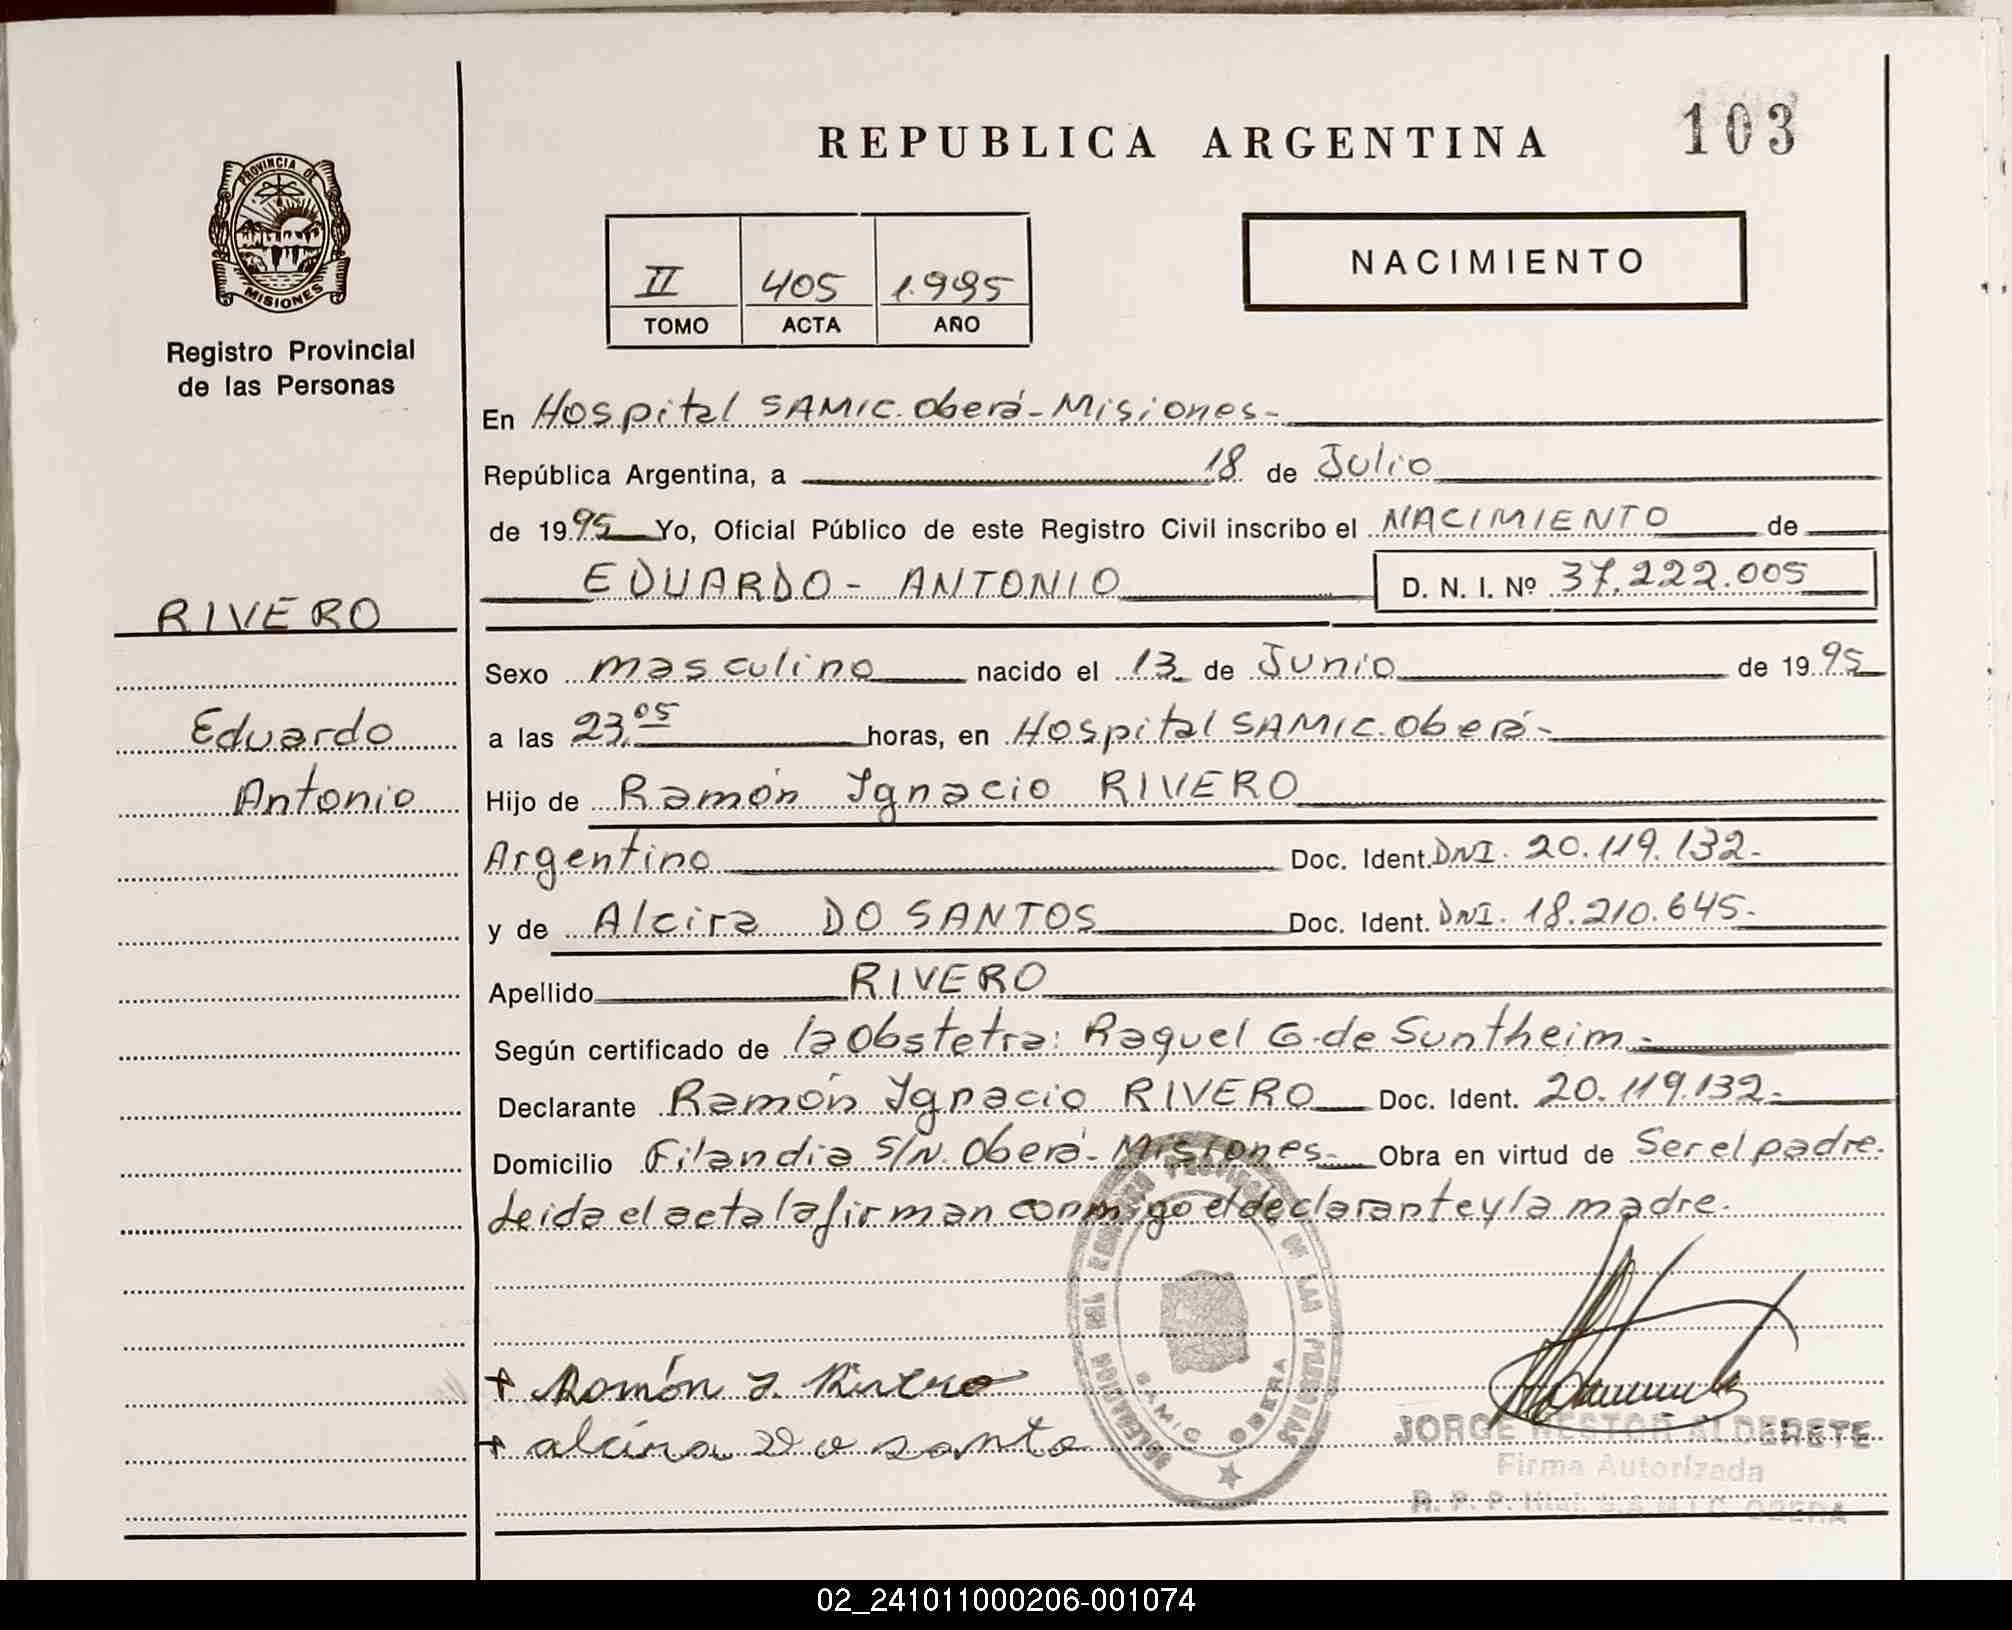 REPUBLICA ARGENTINA
103
PROVINCIA DE
MISIONES
Registro Provincial
de las Personas
II 405 1.995
TOMO ACTA AÑO
NACIMIENTO
En Hospital SAMIC. Oberá - Misiones -
República Argentina, a 18 de Julio
de 1995 Yo, Oficial Público de este Registro Civil inscribo el NACIMIENTO de
EDUARDO - ANTONIO D. N. I. Nº 37.222.005
RIVERO
Eduardo
Antonio
Sexo masculino nacido el 13 de Junio de 1995
a las 23,05 horas, en Hospital SAMIC. Oberá -
Hijo de Ramón Ignacio RIVERO
Argentino Doc. Ident. DNI. 20.119.132.-
y de Alcira DO SANTOS Doc. Ident. DNI. 18.210.645.-
Apellido RIVERO
Según certificado de la Obstetra: Raquel G. de Suntheim.-
Declarante Ramón Ignacio RIVERO Doc. Ident. 20.119.132.-
Domicilio Filandia S/N. Oberá - Misiones - Obra en virtud de Ser el padre.
Leida el acta la firman conmigo el declarante y la madre.
+ Ramón I. Rivero
+ alcira Do santo
DELEGACION DEL REGISTRO PROVINCIAL DE LAS PERSONAS
SAMIC OBERA
JORGE NESTOR ALDERETE
Firma Autorizada
R. P. P. Htal. S.A.M.I.C. OBERA
02_241011000206-001074